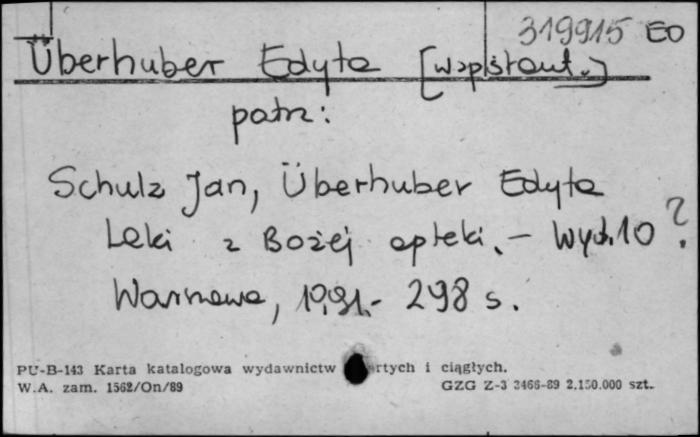 319915 EO
Überhuber Edyta [współaut.]
patrz:
Schulz Jan, Überhuber Edyta
Leki z Bożej apteki. – Wyd. 10 ?
Warszawa, 1991.- 298 s.
PU-B-143 Karta katalogowa wydawnictw rtych i ciągłych.
W.A. zam. 1562/On/89 GZG Z-3 3466-89 2.150.000 szt.